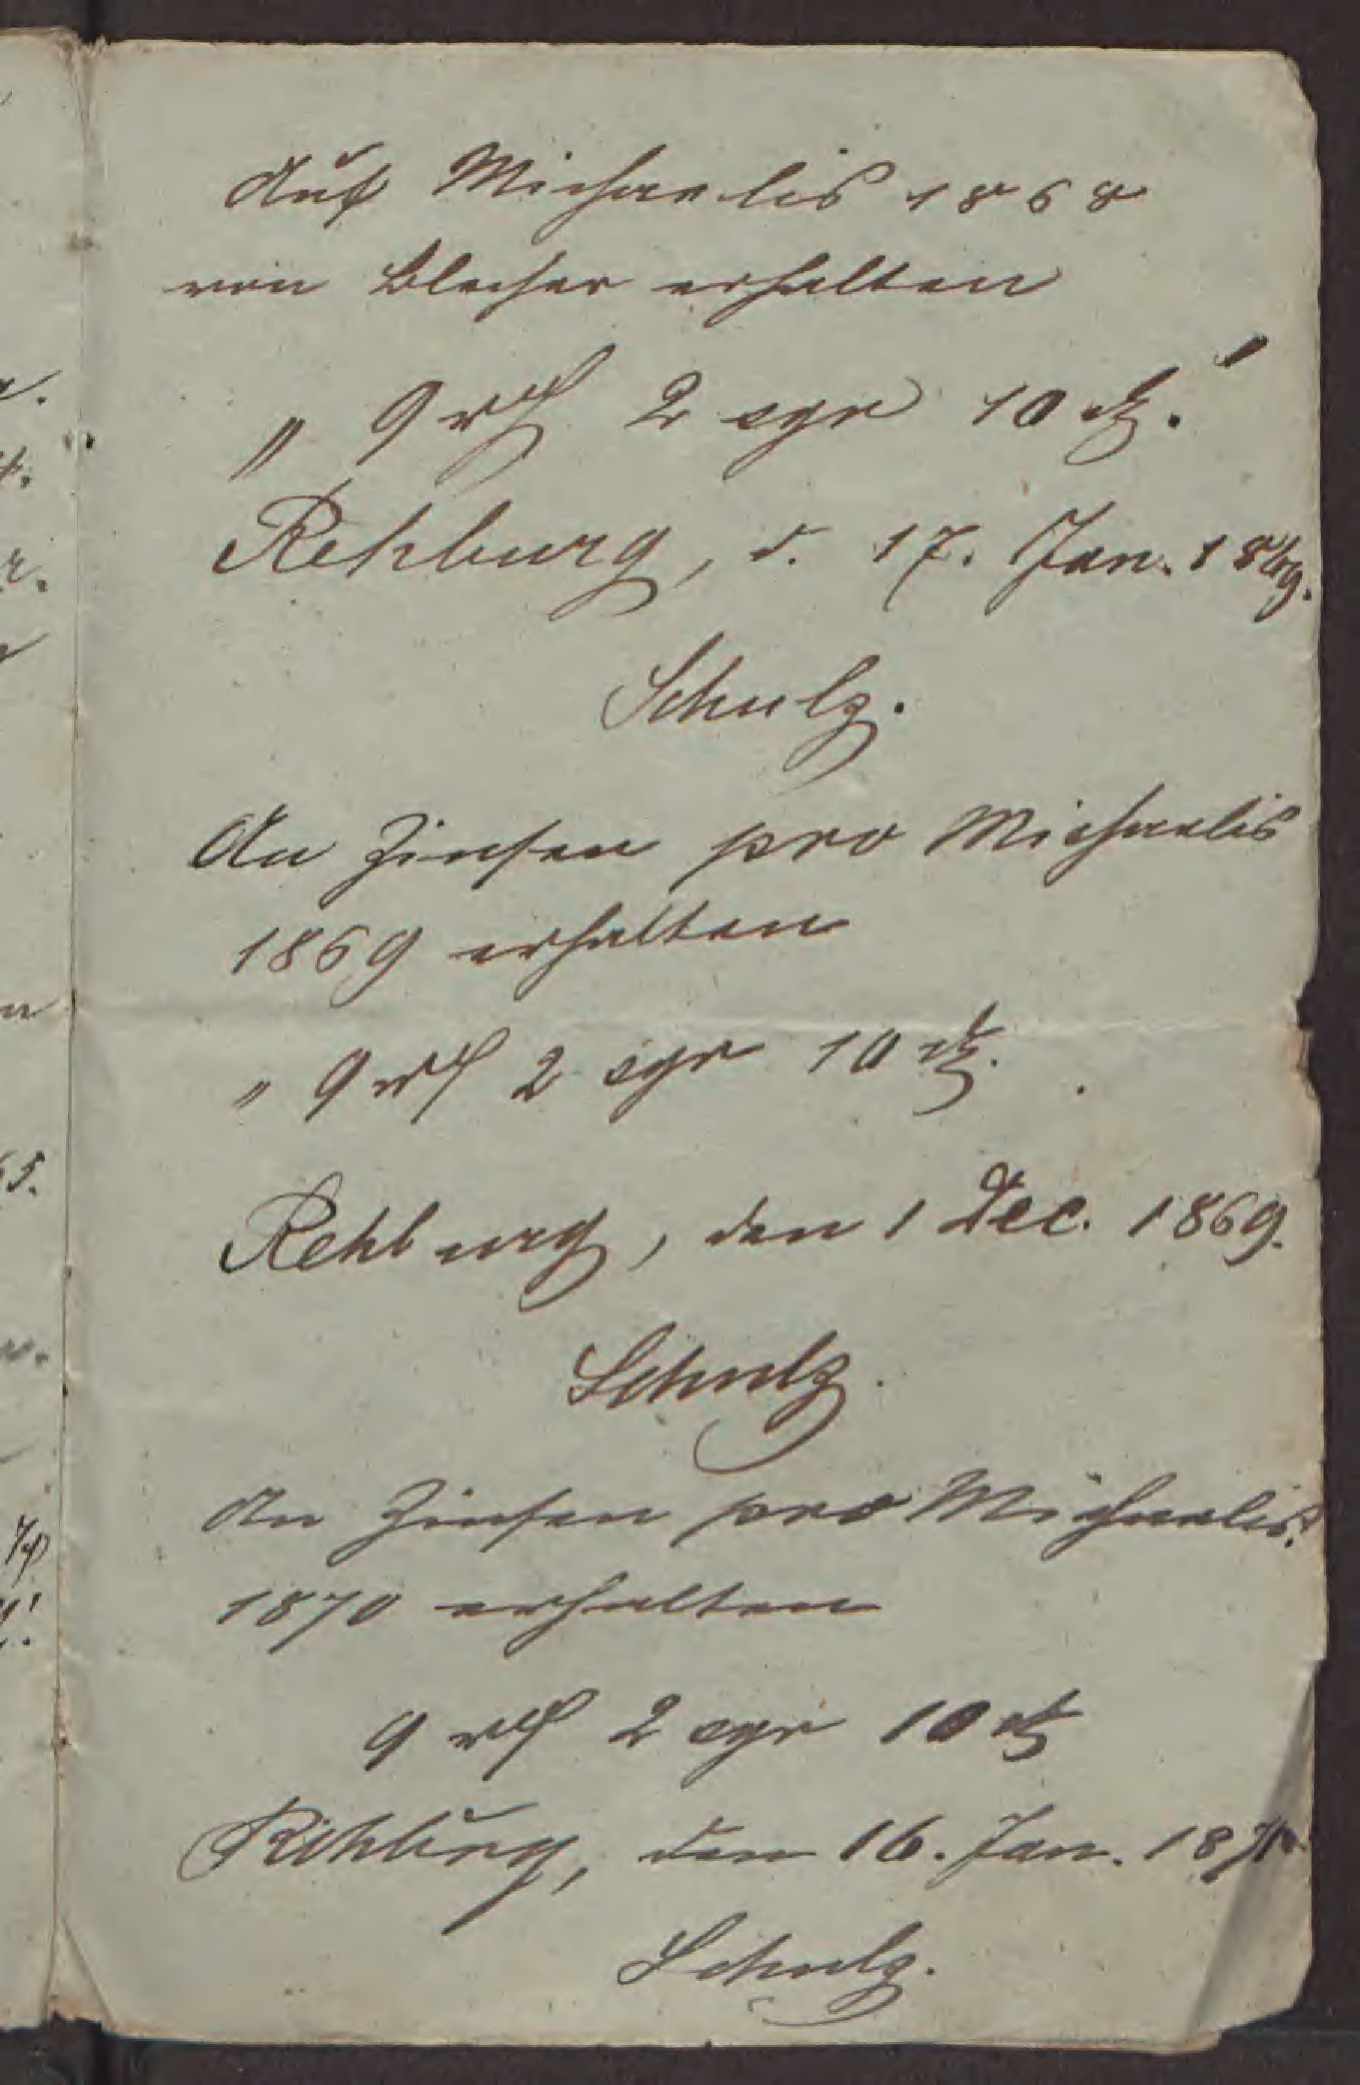 Auf Michaelis 1868
von Blecher erhalten
„ 9 rℳ 2 sgr 10 ₰.
Rehburg, d. 17. Jan. 1869.
Schulz.
An Zinsen pro Michaelis
1869 erhalten
„ 9 rℳ 2 sgr 10 ₰.
Rehburg, den 1 Dec. 1869.
Schulz.
An Zinsen pro Michaelis
1870 erhalten
9 rℳ 2 sgr 10 ₰
Rehburg, den 16. Jan. 1871
Schulz.